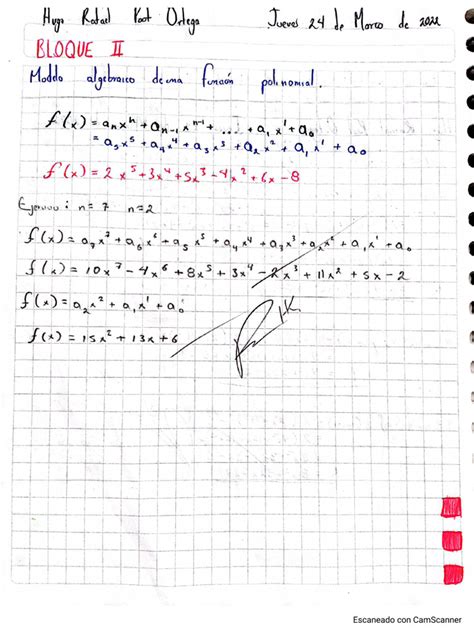 Hugo Rafael Poot Ortega Jueves 24 de Marzo de 2022
BLOQUE II
Modelo algebraico de una función polinomial.
f(x) = aₙxⁿ + aₙ₋₁xⁿ⁻¹ + ... + a₁x¹ + a₀
= a₅x⁵ + a₄x⁴ + a₃x³ + a₂x² + a₁x¹ + a₀
f(x) = 2x⁵ + 3x⁴ + 5x³ - 4x² + 6x - 8
n = 7 n = 2
f(x) = a₇x⁷ + a₆x⁶ + a₅x⁵ + a₄x⁴ + a₃x³ + a₂x² + a₁x¹ + a₀
f(x) = 10x⁷ - 4x⁶ + 8x⁵ + 3x⁴ - 2x³ + 11x² + 5x - 2
f(x) = a₂x² + a₁x¹ + a₀
f(x) = 15x² + 13x + 6
Escaneado con CamScanner